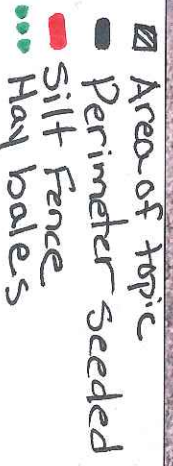 Area of topic
Perimeter seeded
Silt Fence
Hay bales